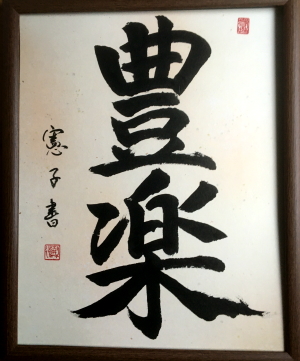 豊楽
憲子書